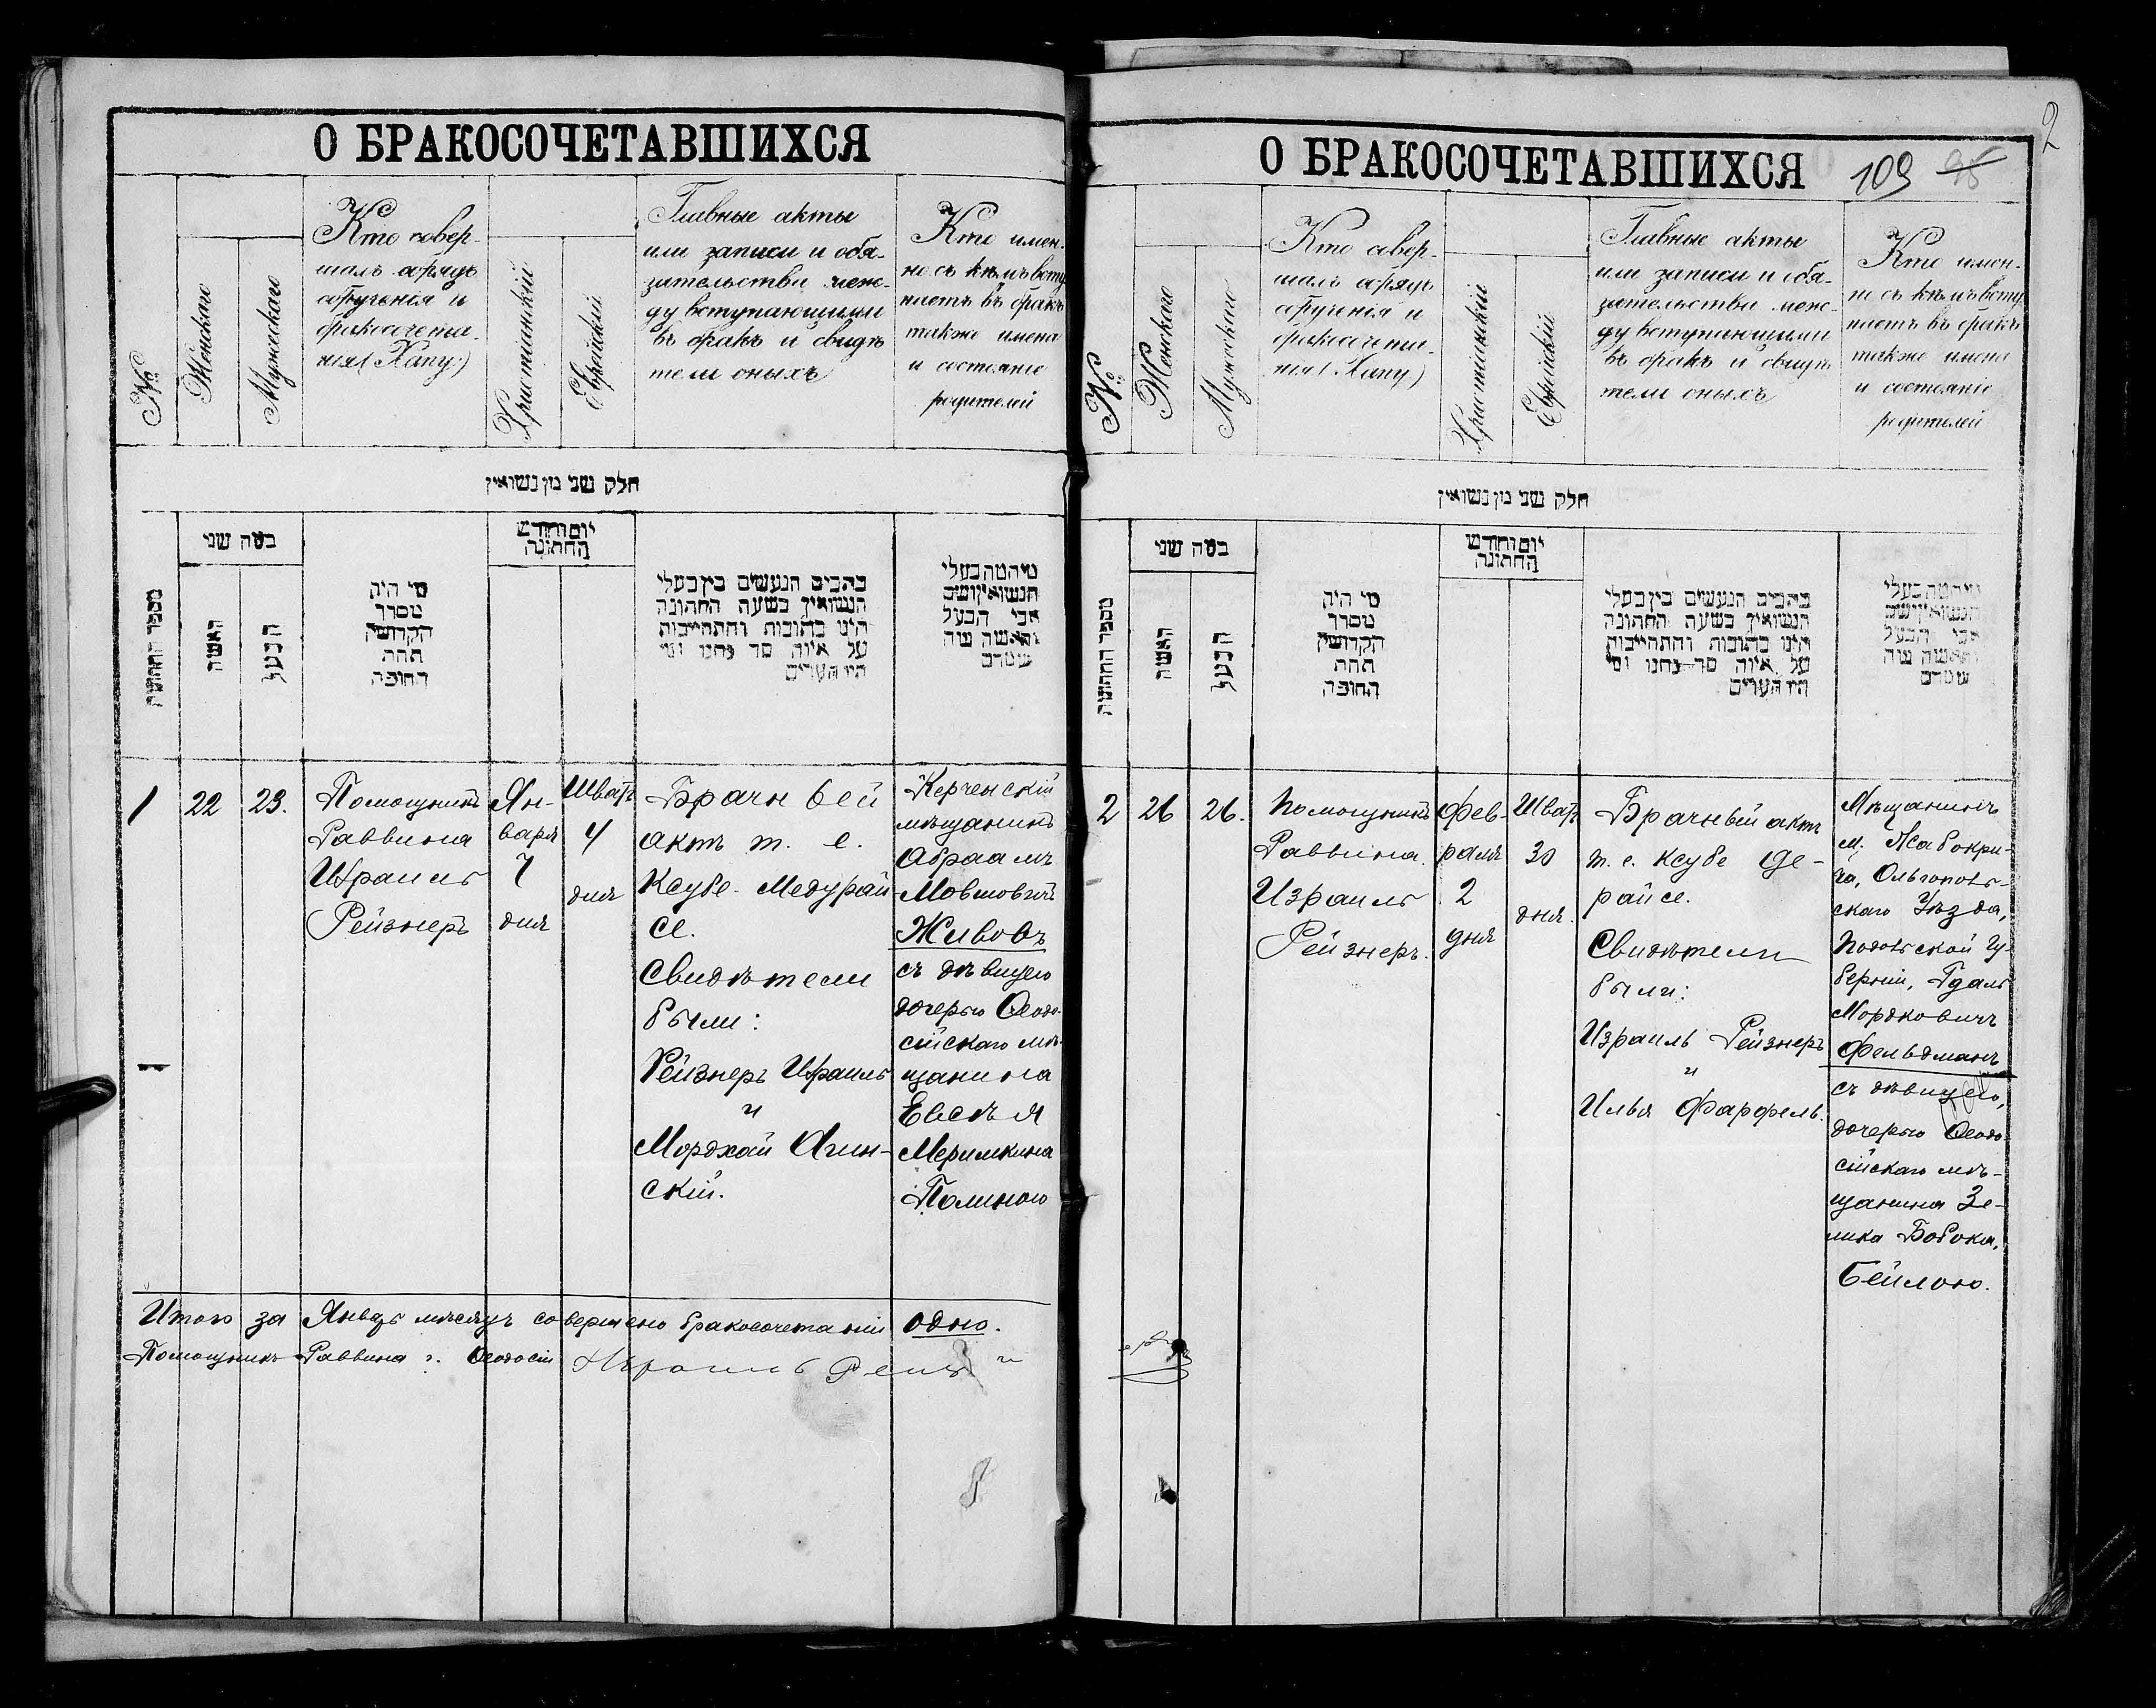 О БРАКОСОЧЕТАВШИХСЯ
№
Женскаго
Мужескаго
Кто совер-
шалъ обрядъ
обрученія и
бракосочета-
нія (Хапу)
Христіанскій
Еврейскій
Главные акты
или записи и обя-
зательства меж-
ду вступающими
въ бракъ и свидѣ
тели оныхъ
Кто имен-
но съ кѣмъ всту
паетъ въ бракъ
также имена
и состояніе
родителей
חלק שני מן נשואין
מספר החתונות
כמה שני
האשה
הבעל
מי היה
מסדר
הקדושין
תחת
החופה
יום וחודש
החתונה
כתבים הנעשים בין בעלי
הנשואין בשעה החתונה
היינו כתובות והתחייבות
על איזה סך נתנו ומי
היו העדים
מי המה בעלי
הנשואין ושם
אבי הבעל
והאשה ומה
1
22
23.
Помощникъ
Раввина
Израиль
Рейзнеръ
Ян-
варя
7
дня
Шватъ
4
дня
Брачн ьей
актъ т. е.
Ксубе. Медурай
се.
Свидѣтели
были:
Рейзнеръ Израиль
и
Мордхай Агин-
скій.
Керченскій
мѣщанинъ
Абраамъ
Мовшовичъ
Живовъ
съ дѣвицею
дочерью Ѳеодо-
сійскаго мѣ-
щанина
Евсѣя
Меримкина
Полиною
Итого за Январь мѣсяцъ совершено бракосочетаній одно.
Помощникъ Раввина г. Ѳеодосіи Израиль
О БРАКОСОЧЕТАВШИХСЯ
109
2
№
Женскаго
Мужескаго
Кто совер-
шалъ обрядъ
обрученія и
бракосочета-
нія (Хапу)
Христіанскій
Еврейскій
Главные акты
или записи и обя-
зательства меж-
ду вступающими
въ бракъ и свидѣ
тели оныхъ
Кто имен-
но съ кѣмъ всту
паетъ въ бракъ
также имена
и состояніе
родителей
חלק שני מן נשואין
מספר החתונות
כמה שני
האשה
הבעל
מי היה
מסדר
הקדושין
תחת
החופה
יום וחודש
החתונה
כתבים הנעשים בין בעלי
הנשואין בשעה החתונה
היינו כתובות והתחייבות
על איזה סך נתנו ומי
היו העדים
מי המה בעלי
הנשואין ושם
אבי הבעל
והאשה ומה
2
26
26.
Помощникъ
Раввина.
Израиль
Рейзнеръ.
Фев-
раля
2
дня
Шватъ
30
дня.
Брачный актъ
т. е. Ксубе Де-
райсе.
Свидѣтели
были:
Израиль Рейзнеръ
и
Илья Фарфель.
Мѣщанинъ
м. Жабокри-
ча, Ольгополь-
скаго Уѣзда,
Подольской Гу-
берніи, Гдаль
Мордковичъ
Фельдманъ
съ дѣвицею,
дочерью Ѳеодо-
сійскаго мѣ-
щанина Зе-
лика Бобока,
Бейлою.